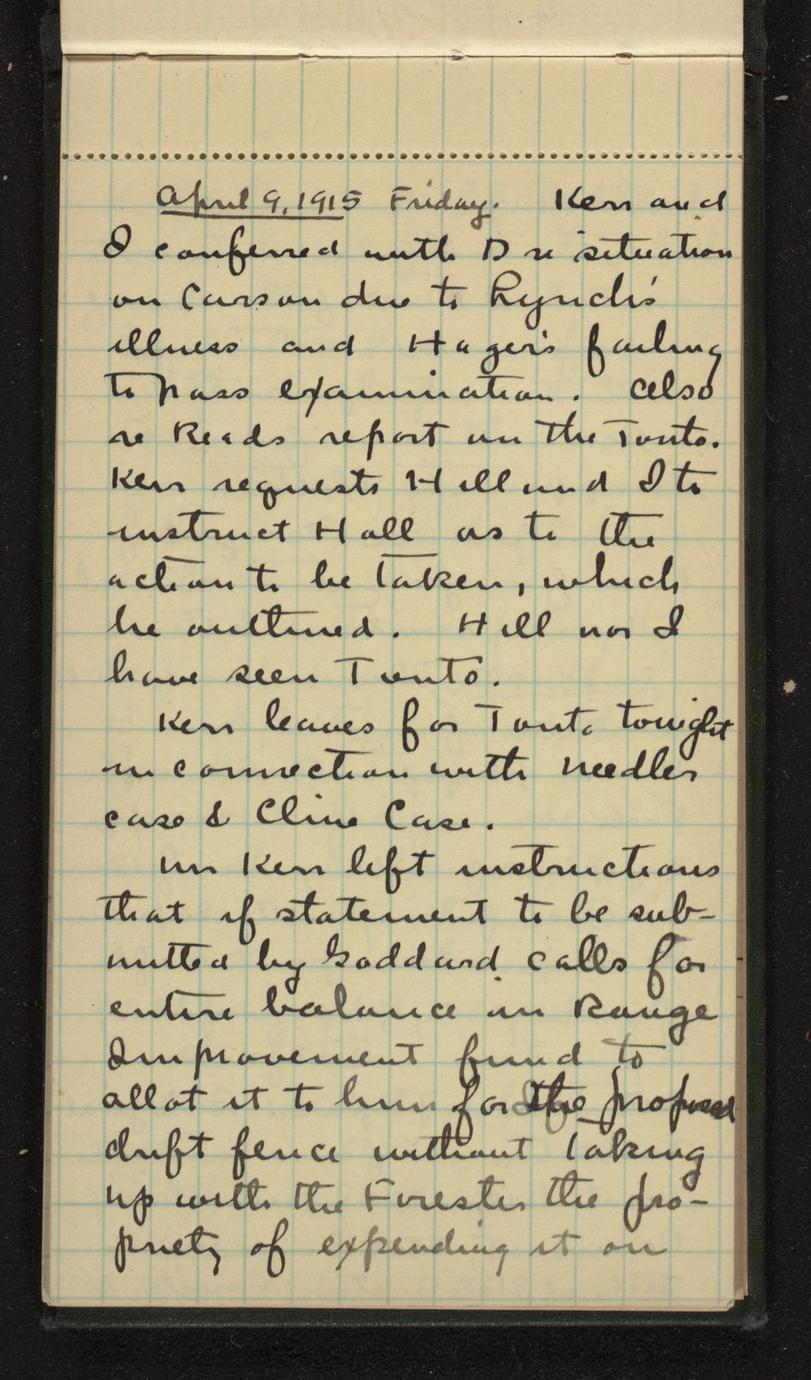 April 9, 1915 Friday. Kerr and
I conferred with D re situation
on Carson due to Lynch's
illness and Hager's failing
to pass examination. Also
re Reads report on the Tonto.
Kerr requests Hill and I to
instruct Hall as to the
action to be taken, which
he outlined. Hill nor I
have seen Tonto.
Kerr leaves for Tonto tonight
in connection with Needles
case & Cline Case.
Mr Kerr left instructions
that if statement to be sub-
mitted by Goddard calls for
entire balance in Range
Improvement fund to
allot it to him for the proposed
drift fence without taking
up with the Forester the pro-
priety of expending it on